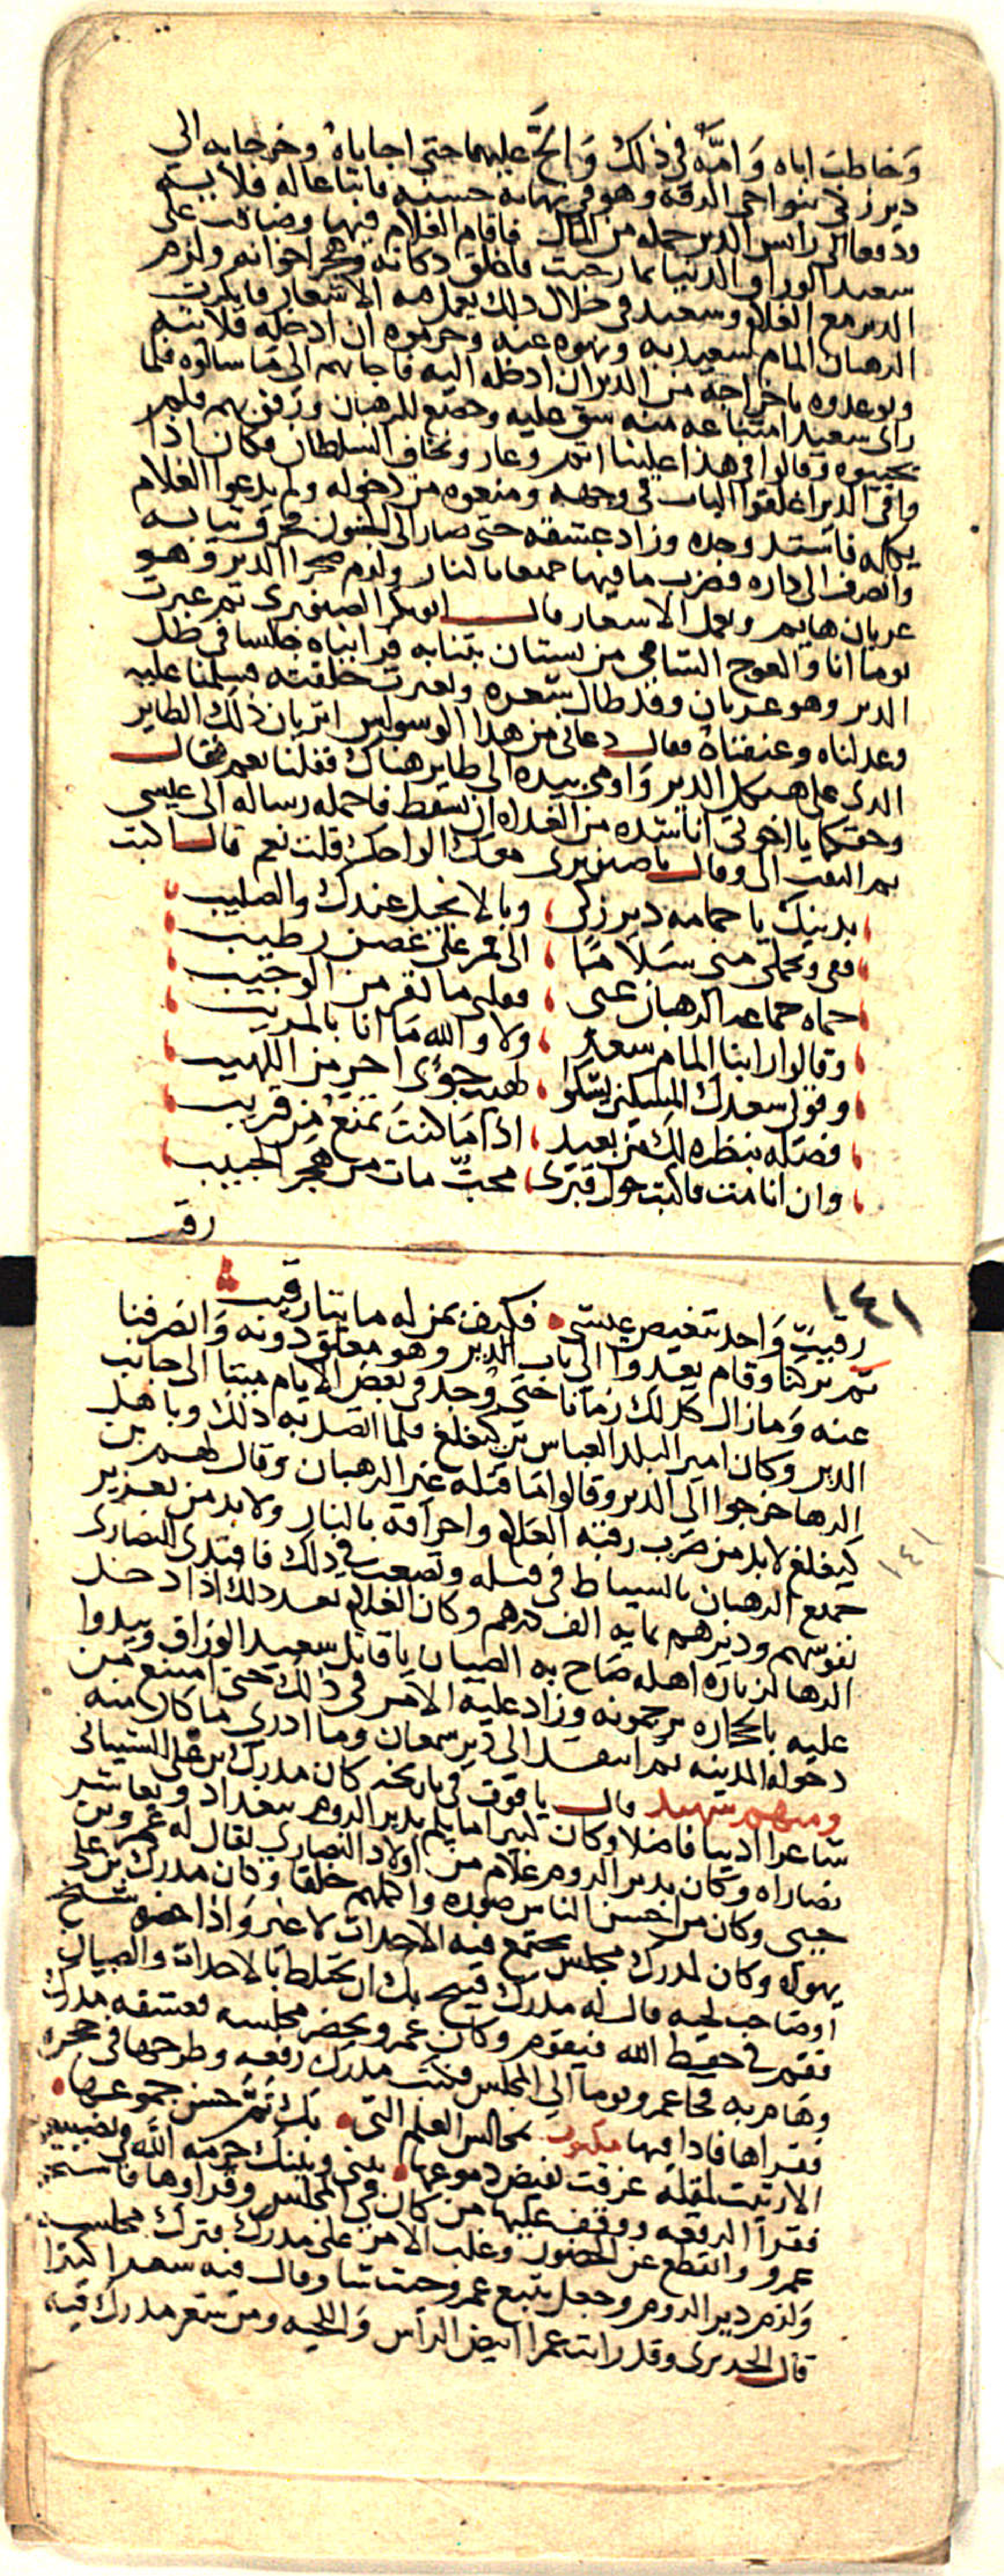 وخاطب اباه وامه في ذلك والح عليهما حتى اجاباه وخرجا به الى
دير زكى بنواحي الرقة وهو في نهاية حسنه فابتاعا له قلاية
ودفعا الى راس الدير جملة من المال فاقام الغلام فيها وضاقت على
سعيد الوراق الدنيا بما رحبت فاغلق دكانه وهجر اخوانه ولزم
الدير مع الغلام وسعيد في خلال ذلك يعمل فيه الاشعار فانكرت
الرهبان المام سعيد به ونهوه عنه وحرموه ان ادخله قلايته
وتوعدوه باخراجه من الدير ان ادخله اليه فاجابهم الى ما سالوه فلما
راى سعيد امتناعه منه شق عليه وخضع للرهبان ورفق بهم فلم
يجيبوه وقالوا في هذا علينا اثم وعار ونخاف السلطان فكان اذا
وافى الدير اغلقوا الباب في وجهه ومنعوه من دخوله ولم يدعوا الغلام
يكلمه فاشتد وجده وزاد عشقه حتى صار الى الجنون فخرق ثيابه
وانصرف الى داره فضرب ما فيها جميعا بالنار ولزم صحرا الدير وهو
عريان هايم ويعمل الاشعار قال ابو بكر الصنوبري ثم عبرت
يوما انا والعوج الشامي من بستان بتنا به فرايناه جالسا في ظل
الدير وهو عريان وقد طال شعره وتغيرت خلقته فسلمنا عليه
وعدلناه وعنفناه فقال دعاني من هذا الوسواس اتريان ذلك الطاير
الذي على هيكل الدير واومى بيده الى طاير هناك فقلنا نعم فقال
وحقكما يا اخوتي انا اناشده من الغداه ان يسقط فاحمله رساله الى عيسى
ثم التفت الى وقال يا صنوبري معك الواحك قلت نعم قال اكتب
بدينك يا حمامه دير زكى ، وبالانجيل عندك والصليب
قفي وتحملي مني سلاما ، الى قمر على غصن رطيب
حماه جماعه الرهبان عني ، فقلبي ما يقر من الوجيب
وقالوا رابنا المام سعد ، ولا والله ما انا بالمريب
وقولي سعدك المسكين يشكوا ، لهيب جوى احر من اللهيب
فصله بنظره لك من بعيد ، اذا ما كنت تمنع من قريب
وان انا مت فاكتب حول قبري ، محب مات من هجر الحبيب
رقيـ
١٤١
رقيب واحد تنغيص عيشي فكيف بمن له مايتا رقيب
ثم تركنا وقام يعدوا الى باب الدير وهو مغلق دونه وانصرفنا
عنه وما زال كذلك زمانا حتى وجد في بعض الايام ميتا الى جانب
الدير وكان امير البلد العباس بن كيغلغ فلما اتصل به ذلك وباهل
الرها خرجوا الى الدير وقالوا ما قتله غير الرهبان وقال لهم بن
كيغلغ لا بد من ضرب رقبه الغلام واحراقه بالنار ولا بد من تعزير
١٤١
جميع الرهبان بالسياط وتصعب في ذلك فافتدى النصارى
نفوسهم وديرهم بمايه الف درهم وكان الغلام بعد ذلك اذا دخل
الرها لزياره اهله صاح به الصبيان يا قاتل سعيد الوراق ويبدوا
عليه بالحجاره يرجمونه وزاد عليه الامر في ذلك حتى امتنع من
دخوله المدينه ثم انتقل الى دير سمعان وما ادري ما كان منه
ومنهم شهيد قال ياقوت في تاريخه كان مدرك بن علي الشيباني
شاعرا اديبا فاضلا وكان كثيرا ما يلم بدير الروم ببغداد ويعاشر
نصاراه وكان بدير الروم غلام من اولاد النصارى يقال له عمرو بن
حيى وكان من احسن الناس صوره واكملهم خلقا وكان مدرك بن علي
يهواه وكان لمدرك مجلس يجتمع فيه الاحداث لا غير واذا حضره شيخ
او صاحب لحيه قال له مدرك قبيح بك ان تختلط بالاحداث والصبيان
فقم في حفظ الله فيقوم وكان عمرو يحضر مجلسه فعشقه مدرك
وهام به فجا عمرو يوما الى المجلس فكتب مدرك رقعه وطرحها في حجره
فقراها فاذا فيها مكتوب بمجالس العلم التي بك تم حسن جموعها
الا رثيت لمقلة غرقت بفيض دموعها بيني وبينك حرمه الله في تضييعها
فقرا الرقعه ووقف عليها من كان في المجلس وقراوها فاستحى
عمرو وانقطع عن الحضور وغلب الامر على مدرك فترك مجلسه
ولزم دير الروم وجعل يتبع عمرو حيث شا وقال فيه شعرا كثيرا
قال الحريري وقد رايت عمرا ابيض الراس واللحيه ومن شعر مدرك فيه